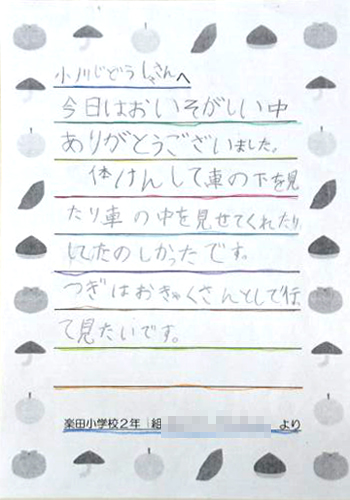 小川じどうしゃさんへ
今日はおいそがしい中
ありがとうございました。
体けんして車の下を見
たり車の中を見せてくれたり
してたのしかったです。
つぎはおきゃくさんとして行
て見たいです。
楽田小学校2年 組 より